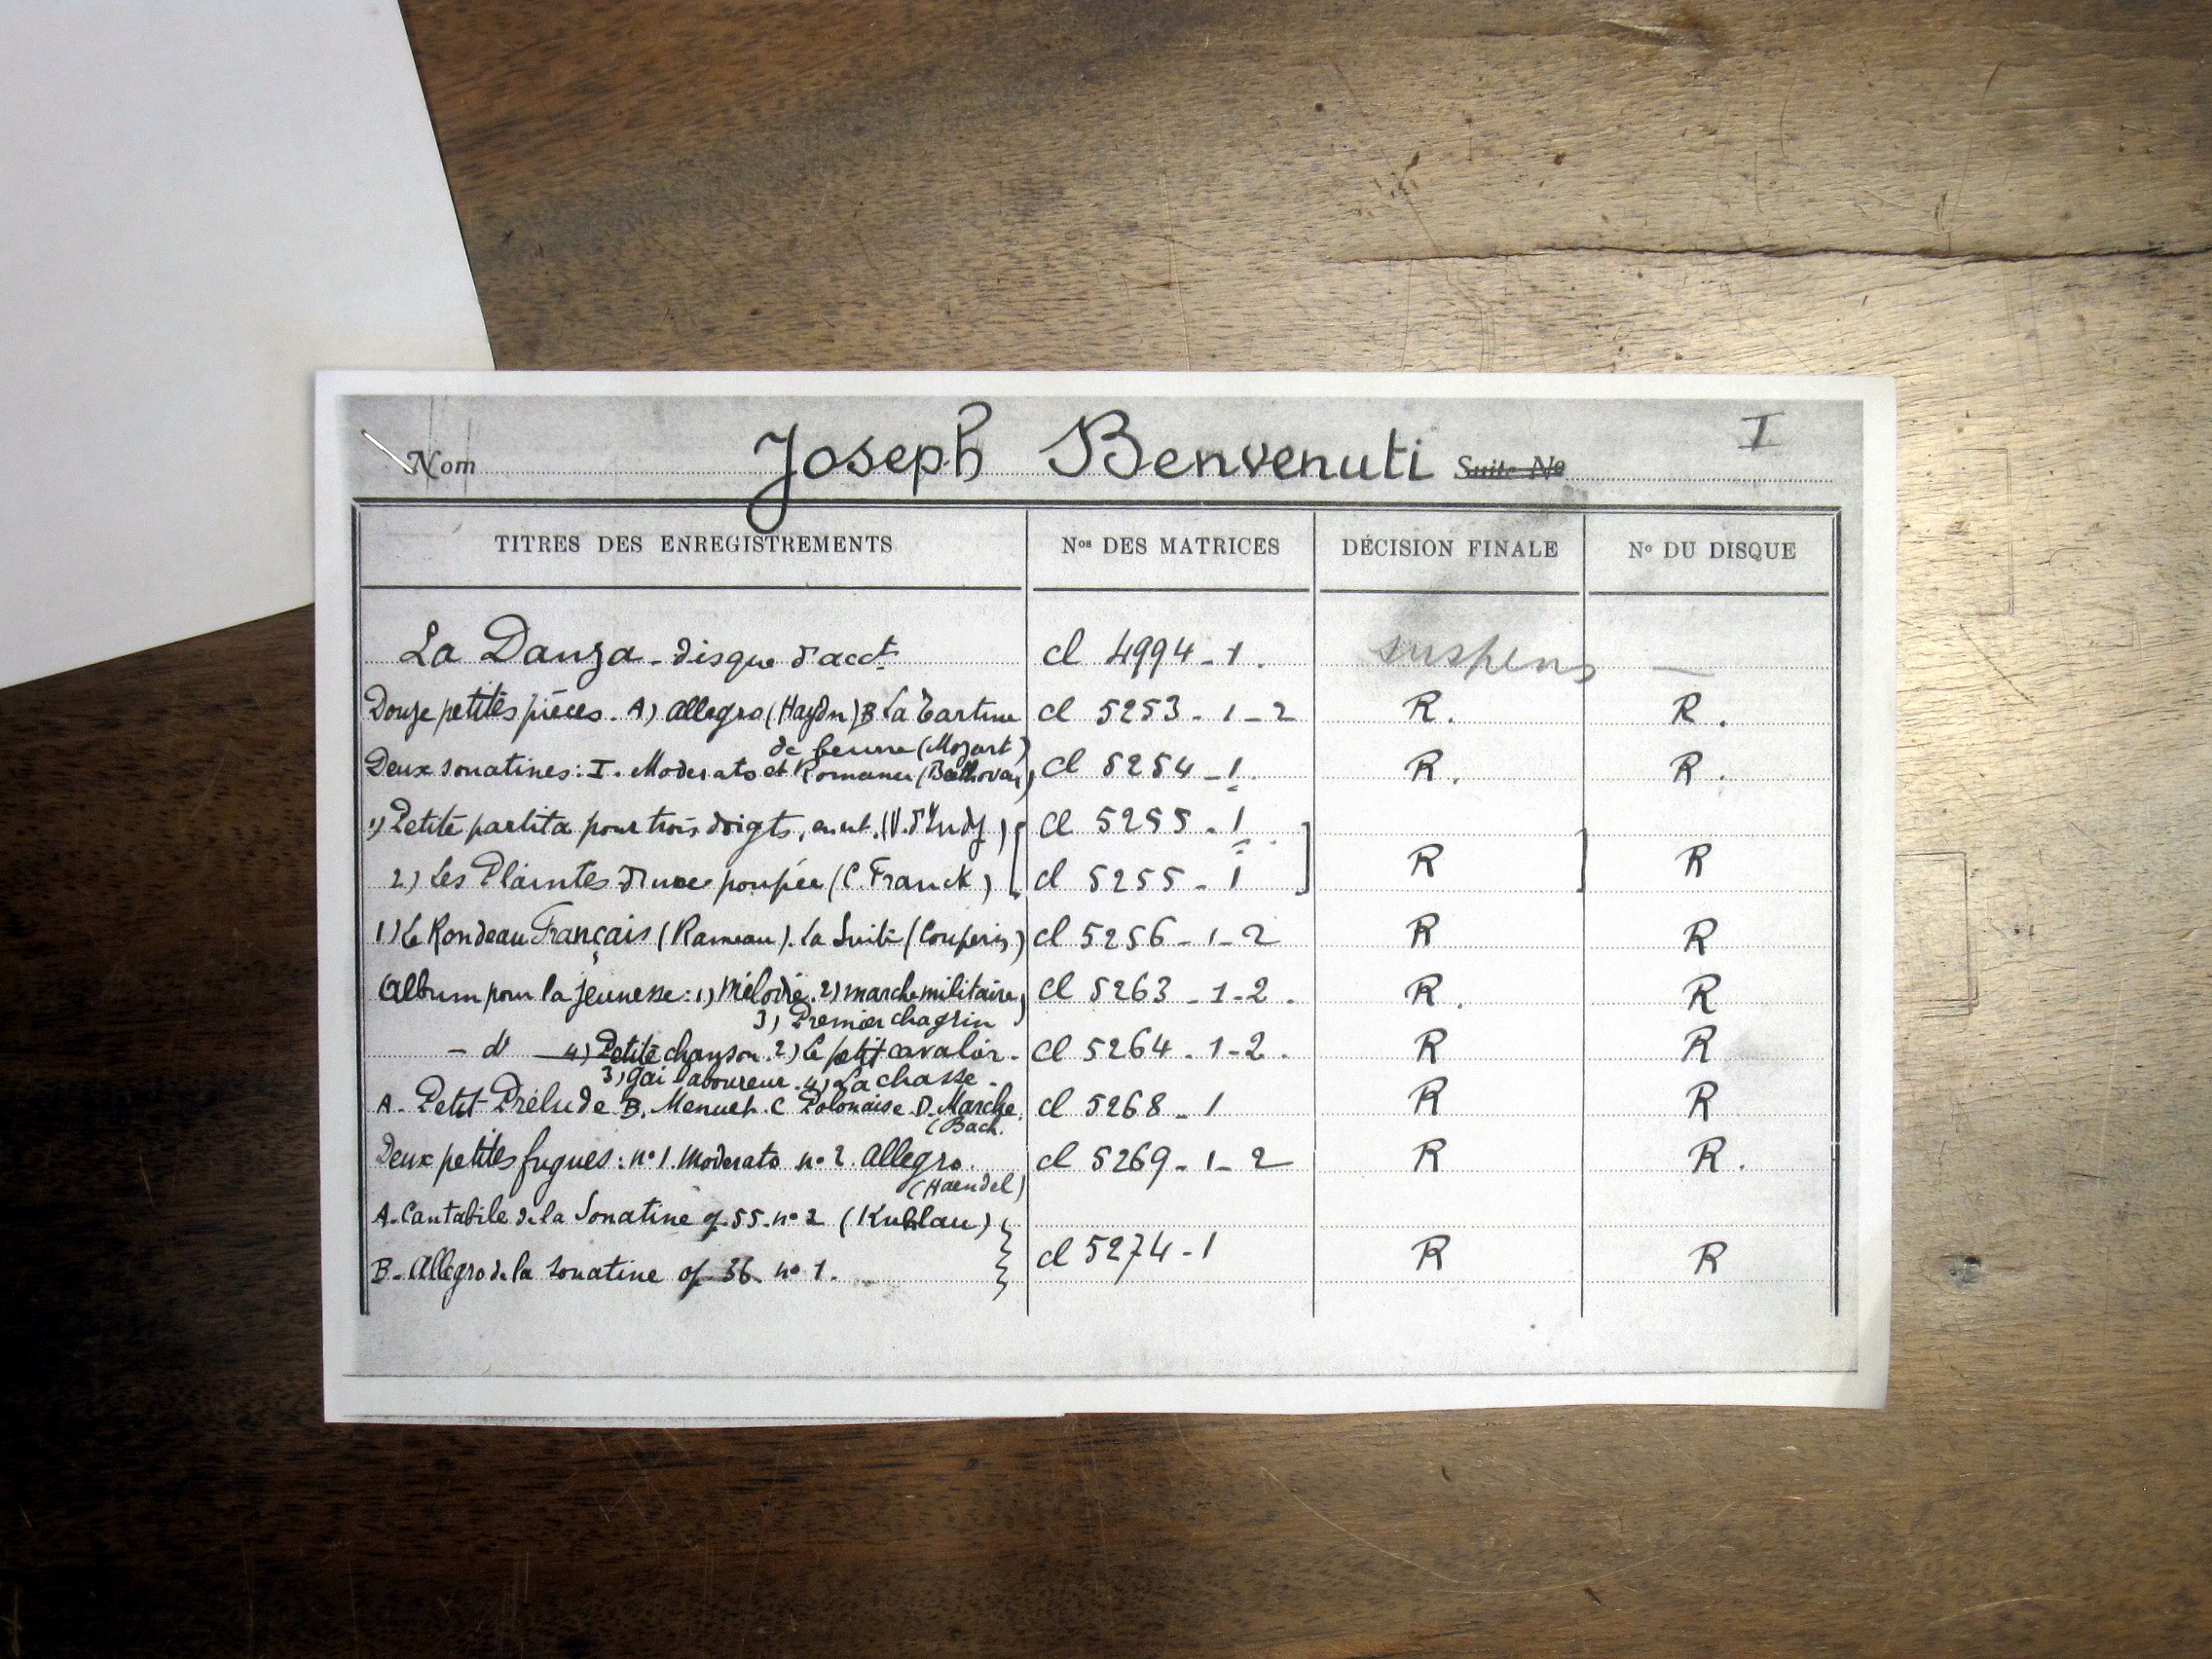 Nom Joseph Benvenuti Suite No I
TITRES DES ENREGISTREMENTS Nos DES MATRICES DÉCISION FINALE No DU DISQUE
La Danza - disque d'acct. cl 4994 - 1. suspens —
Douze petites pièces. A) Allegro (Haydn) B La Tartine cl 5253 - 1 - 2 R. R.
de beurre (Mozart)
Deux sonatines: I. Moderato et Romance (Beethoven) cl 5254 - 1. R. R.
1) Petite partita pour trois doigts, en ut. (V. d'Indy) cl 5255 - 1
2) Les Plaintes d'une poupée (C. Franck) cl 5255 - 1 R R
1) Le Rondeau Français (Rameau). La (Couperin) cl 5256 - 1 - 2 R R
Album pour la jeunesse: 1) Mélodie. 2) marche militaire, cl 5263 - 1 - 2. R. R
3) Premier chagrin
- do 4) Petite chanson. 2) Le petit cavalier. cl 5264 - 1 - 2. R R
3) Gai laboureur. 4) La chasse -
A. Petit Prélude B. Menuet. C Polonaise. D. Marche. cl 5268 - 1 R R
(Bach.
Deux petites fugues: no 1. Moderato no 2. Allegro. cl 5269 - 1 - 2 R R.
(Haendel)
A. Cantabile de la Sonatine op 55. no 2 (Kuhlau)
cl 5274 - 1 R R
B. Allegro de la Sonatine op 36. no 1.